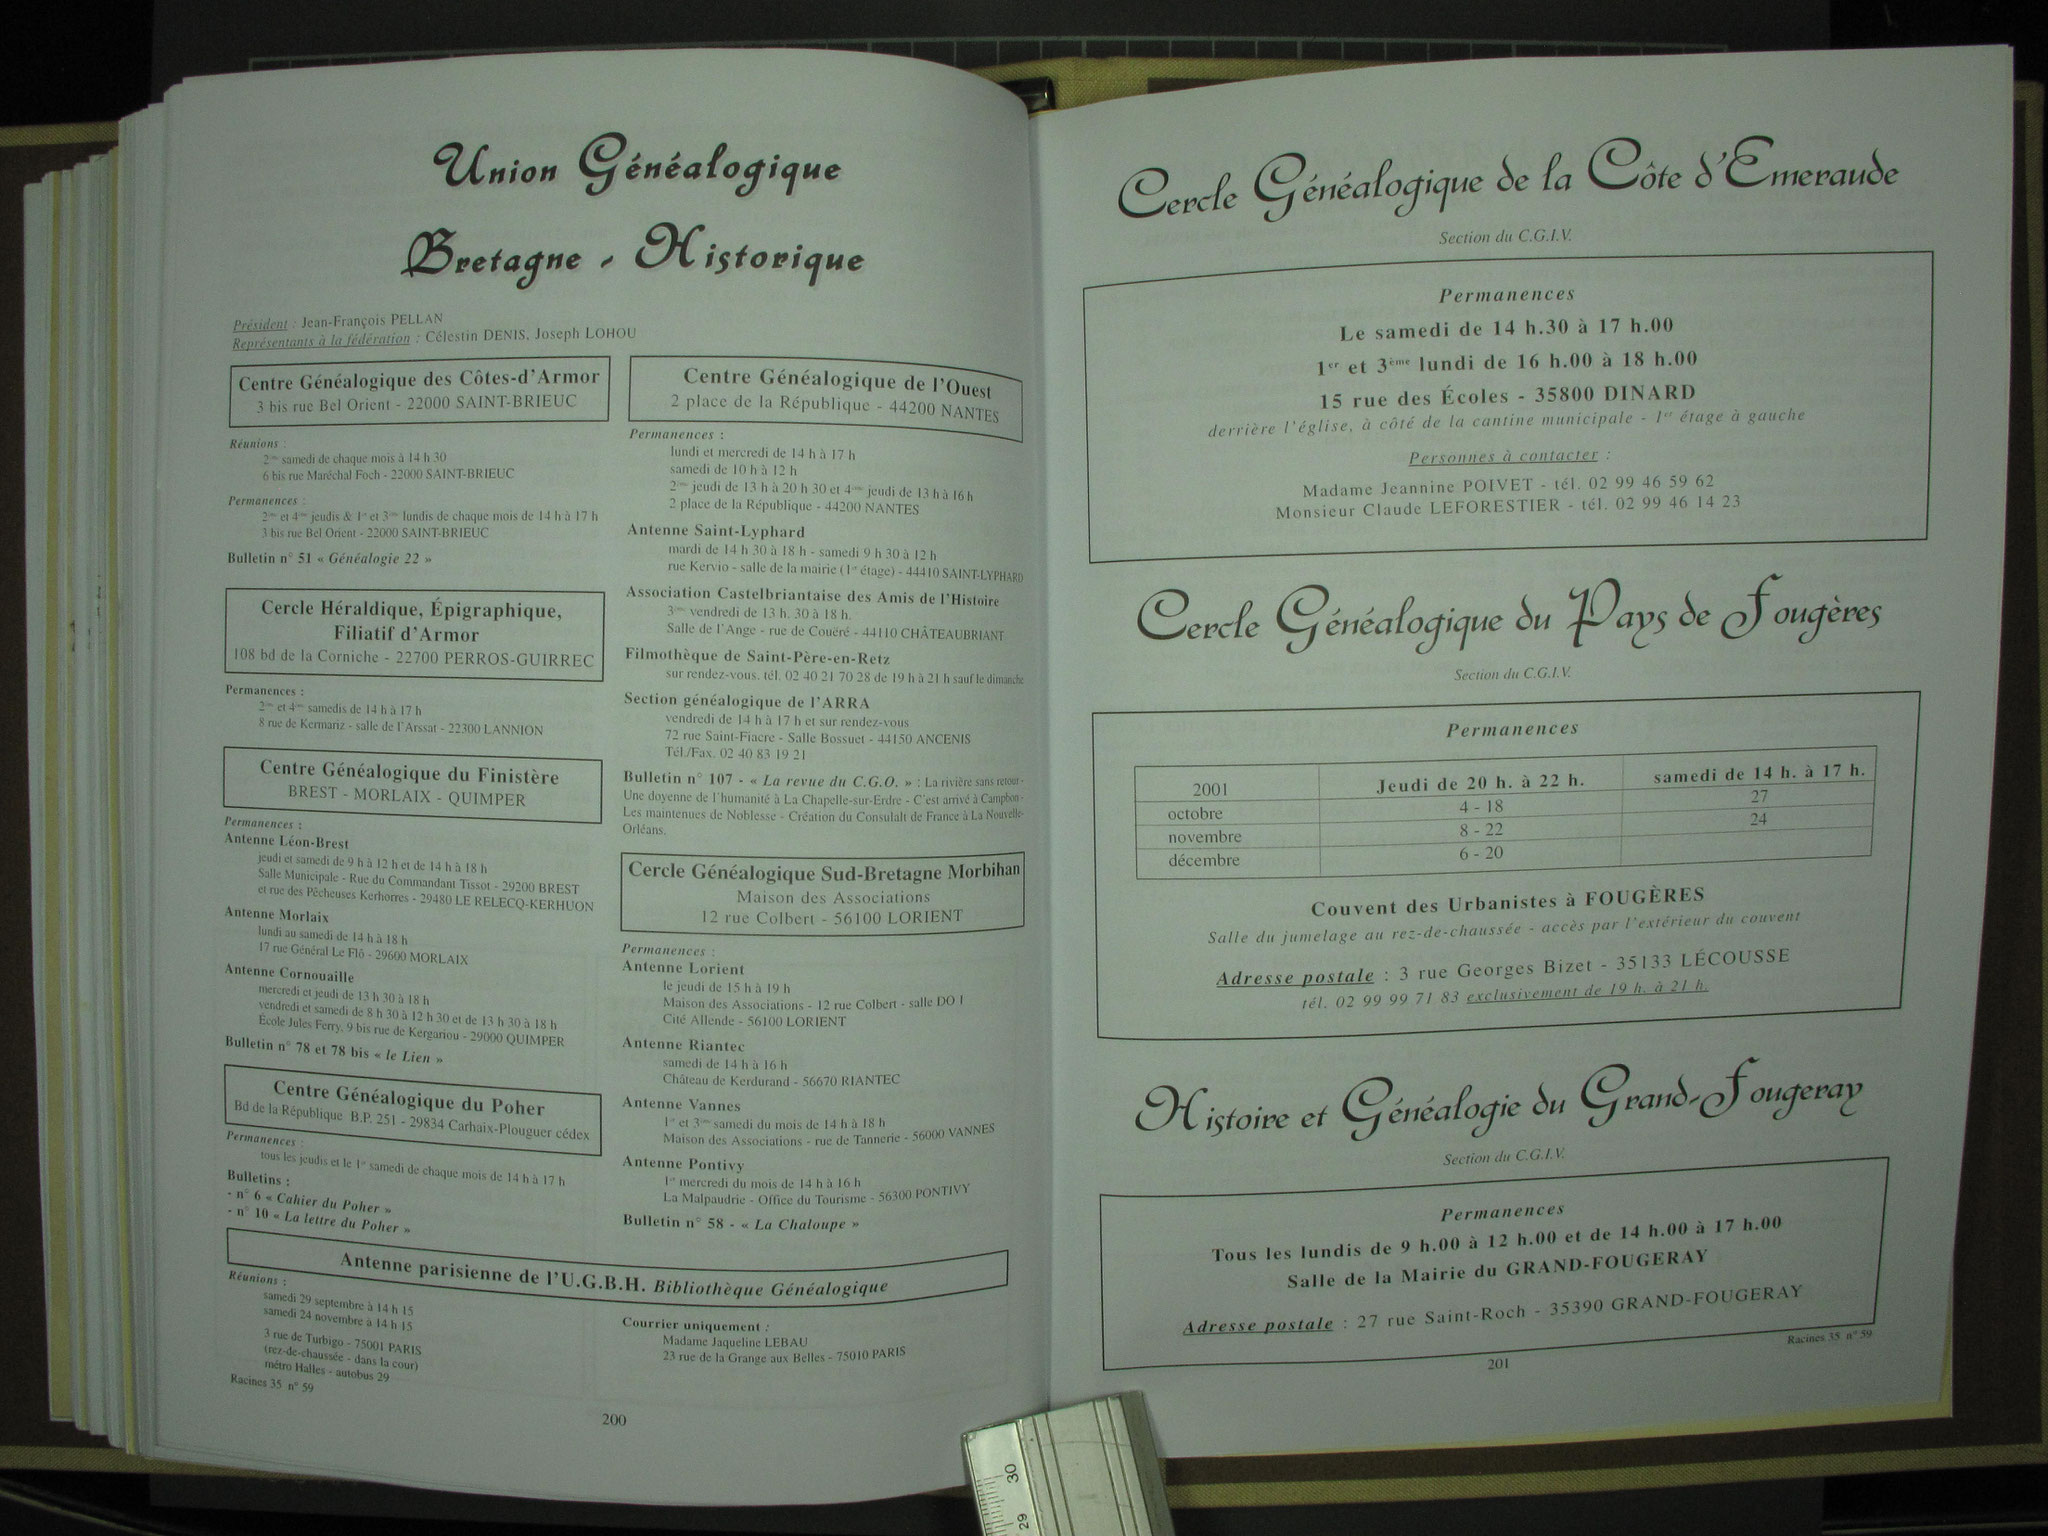 Union Généalogique
Bretagne - Historique
Président : Jean-François PELLAN
Représentants à la fédération : Célestin DENIS, Joseph LOHOU
Centre Généalogique des Côtes-d'Armor
3 bis rue Bel Orient - 22000 SAINT-BRIEUC
Réunions :
2ème samedi de chaque mois à 14 h 30
6 bis rue Maréchal Foch - 22000 SAINT-BRIEUC
Permanences :
2ème et 4ème jeudis & 1er et 3ème lundis de chaque mois de 14 h à 17 h
3 bis rue Bel Orient - 22000 SAINT-BRIEUC
Bulletin n° 51 « Généalogie 22 »
Cercle Héraldique, Épigraphique,
Filiatif d'Armor
108 bd de la Corniche - 22700 PERROS-GUIRREC
Permanences :
2ème et 4ème samedis de 14 h à 17 h
8 rue de Kermariz - salle de l'Arssat - 22300 LANNION
Centre Généalogique du Finistère
BREST - MORLAIX - QUIMPER
Permanences :
Antenne Léon-Brest
jeudi et samedi de 9 h à 12 h et de 14 h à 18 h
Salle Municipale - Rue du Commandant Tissot - 29200 BREST
et rue des Pêcheuses Kerhorres - 29480 LE RELECQ-KERHUON
Antenne Morlaix
lundi au samedi de 14 h à 18 h
17 rue Général Le Flô - 29600 MORLAIX
Antenne Cornouaille
mercredi et jeudi de 13 h 30 à 18 h
vendredi et samedi de 8 h 30 à 12 h 30 et de 13 h 30 à 18 h
École Jules Ferry, 9 bis rue de Kergariou - 29000 QUIMPER
Bulletin n° 78 et 78 bis « le Lien »
Centre Généalogique du Poher
Bd de la République B.P. 251 - 29834 Carhaix-Plouguer cédex
Permanences :
tous les jeudis et le 1er samedi de chaque mois de 14 h à 17 h
Bulletins :
- n° 6 « Cahier du Poher »
- n° 10 « La lettre du Poher »
Centre Généalogique de l'Ouest
2 place de la République - 44200 NANTES
Permanences :
lundi et mercredi de 14 h à 17 h
samedi de 10 h à 12 h
2ème jeudi de 13 h à 20 h 30 et 4ème jeudi de 13 h à 16 h
2 place de la République - 44200 NANTES
Antenne Saint-Lyphard
mardi de 14 h 30 à 18 h - samedi 9 h 30 à 12 h
rue Kervio - salle de la mairie (1er étage) - 44410 SAINT-LYPHARD
Association Castelbriantaise des Amis de l'Histoire
3ème vendredi de 13 h. 30 à 18 h.
Salle de l'Ange - rue de Couëré - 44110 CHÂTEAUBRIANT
Filmothèque de Saint-Père-en-Retz
sur rendez-vous. tél. 02 40 21 70 28 de 19 h à 21 h sauf le dimanche
Section généalogique de l'ARRA
vendredi de 14 h à 17 h et sur rendez-vous
72 rue Saint-Fiacre - Salle Bossuet - 44150 ANCENIS
Tél./Fax. 02 40 83 19 21
Bulletin n° 107 - « La revue du C.G.O. » : La rivière sans retour -
Une doyenne de l'humanité à La Chapelle-sur-Erdre - C'est arrivé à Campbon -
Les maintenues de Noblesse - Création du Consulalt de France à La Nouvelle-
Orléans.
Cercle Généalogique Sud-Bretagne Morbihan
Maison des Associations
12 rue Colbert - 56100 LORIENT
Permanences :
Antenne Lorient
le jeudi de 15 h à 19 h
Maison des Associations - 12 rue Colbert - salle DO 1
Cité Allende - 56100 LORIENT
Antenne Riantec
samedi de 14 h à 16 h
Château de Kerdurand - 56670 RIANTEC
Antenne Vannes
1er et 3ème samedi du mois de 14 h à 18 h
Maison des Associations - rue de Tannerie - 56000 VANNES
Antenne Pontivy
1er mercredi du mois de 14 h à 16 h
La Malpaudrie - Office du Tourisme - 56300 PONTIVY
Bulletin n° 58 - « La Chaloupe »
Antenne parisienne de l'U.G.B.H. Bibliothèque Généalogique
Réunions :
samedi 29 septembre à 14 h 15
samedi 24 novembre à 14 h 15
3 rue de Turbigo - 75001 PARIS
(rez-de-chaussée - dans la cour)
métro Halles - autobus 29
Courrier uniquement :
Madame Jaqueline LEBAU
23 rue de la Grange aux Belles - 75010 PARIS
Racines 35 n° 59
200
Cercle Généalogique de la Côte d'Emeraude
Section du C.G.I.V.
Permanences
Le samedi de 14 h.30 à 17 h.00
1er et 3ème lundi de 16 h.00 à 18 h.00
15 rue des Écoles - 35800 DINARD
derrière l'église, à côté de la cantine municipale - 1er étage à gauche
Personnes à contacter :
Madame Jeannine POIVET - tél. 02 99 46 59 62
Monsieur Claude LEFORESTIER - tél. 02 99 46 14 23
Cercle Généalogique du Pays de Fougères
Section du C.G.I.V.
Permanences
2001 Jeudi de 20 h. à 22 h. samedi de 14 h. à 17 h.
octobre 4 - 18 27
novembre 8 - 22 24
décembre 6 - 20
Couvent des Urbanistes à FOUGÈRES
Salle du jumelage au rez-de-chaussée - accès par l'extérieur du couvent
Adresse postale : 3 rue Georges Bizet - 35133 LÉCOUSSE
tél. 02 99 99 71 83 exclusivement de 19 h. à 21 h.
Histoire et Généalogie du Grand-Fougeray
Section du C.G.I.V.
Permanences
Tous les lundis de 9 h.00 à 12 h.00 et de 14 h.00 à 17 h.00
Salle de la Mairie du GRAND-FOUGERAY
Adresse postale : 27 rue Saint-Roch - 35390 GRAND-FOUGERAY
Racines 35 n° 59
201
29 30